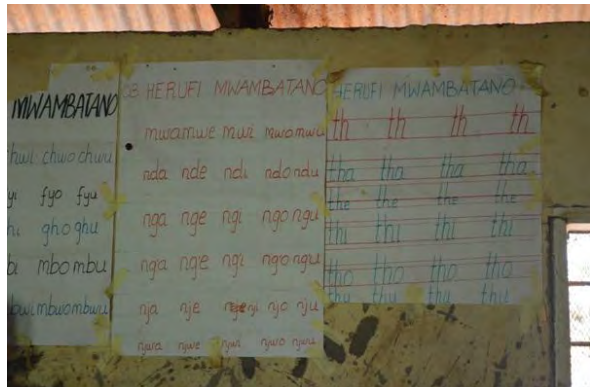 MWAMBATANO
hwi chwo chwu
yi fyo fyu
hi gho ghu
bi mbo mbu
bwi mbwo mbwu
CB. HERUFI MWAMBATANO
mwa mwe mwi mwo mwu
nda nde ndi ndo ndu
nga nge ngi ngo ngu
nga nge ngi ngo ngu
nja nje nji njo nju
njwa njwe njwi njwo njwu
HERUFI MWAMBATANO
th th th th
tha tha tha tha
the the the the
thi thi thi thi
tho tho tho tho
thu thu thu thu